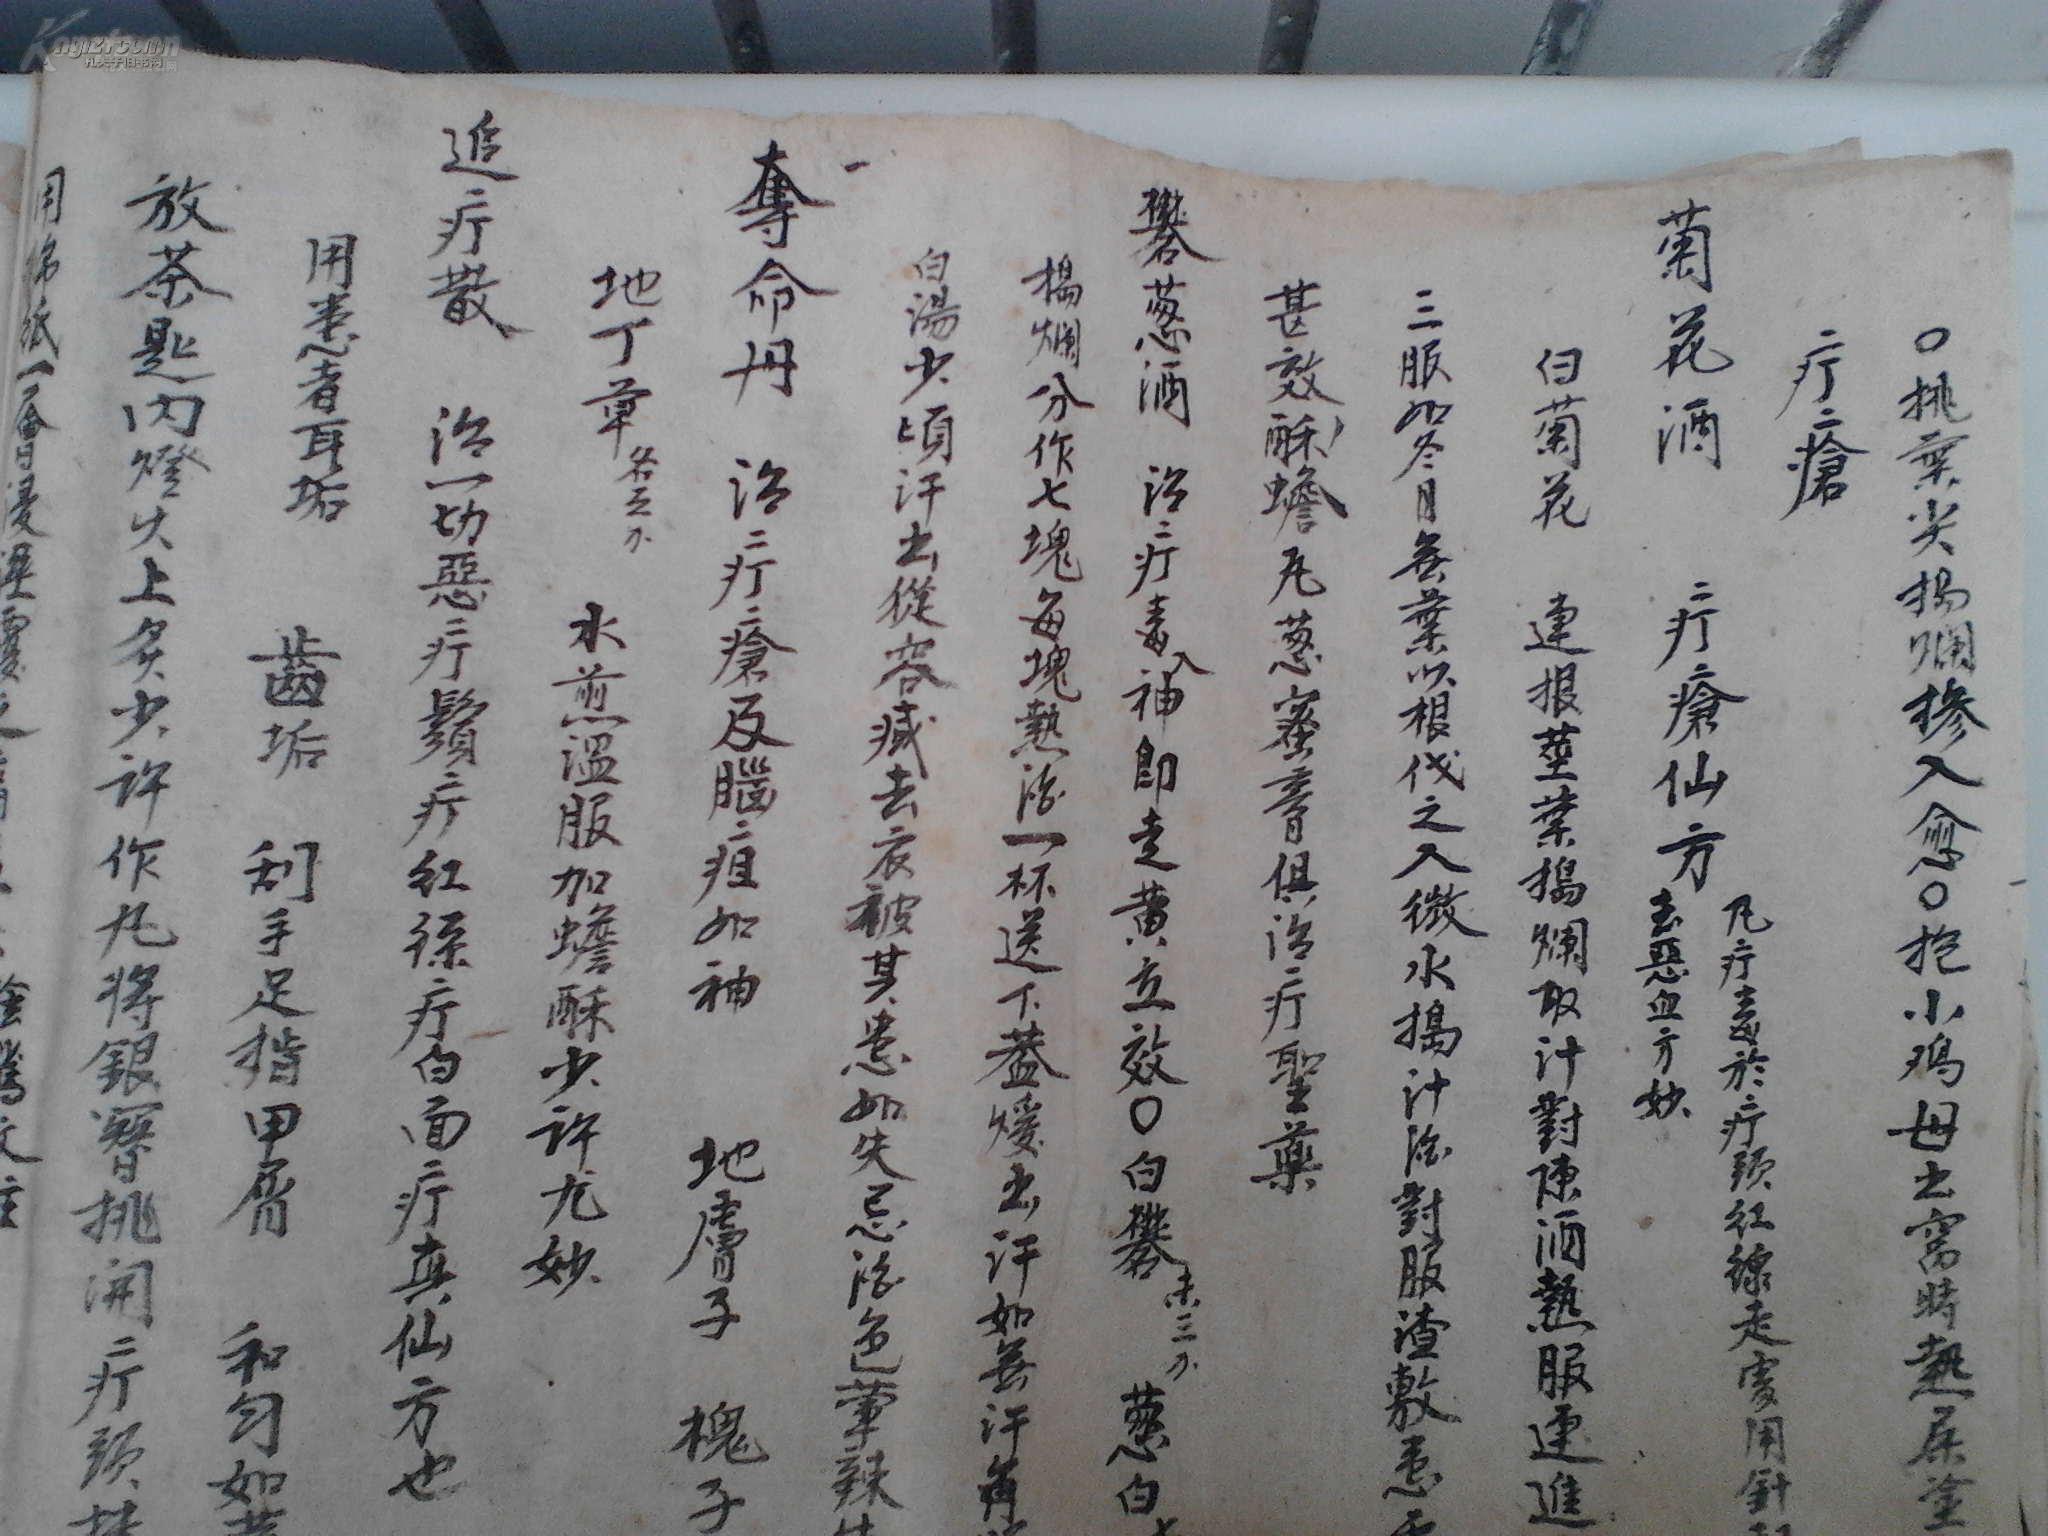 〇挑葉尖搗爛摻入愈〇抱小鸡母出窩時熱屎塗
疔瘡
凡疔毒於疔頭紅線走處用針
菊花酒 疔瘡仙方 去惡血方妙
白菊花 連根莖葉搗爛取汁對陳酒熱服連進
三服如冬月無葉以根代之入微水搗汁酒對服渣敷患
甚效酥蟾丸葱蜜膏俱治疔聖藥
礬葱酒 治疔毒入神即走黄立效〇白礬末三分 葱白
搗爛分作七塊每塊熱酒一杯送下蓋煖出汗如無汗再
白湯少頃汗出從容減去衣被其患如失忌酒色葷辣
一
奪命丹 治疔瘡及腦疽如神 地膚子 槐子
地丁草各三分 水煎溫服加蟾酥少許尤妙
追疔散 治一切惡疔鬚疔紅絲疔白面疔真仙方也
用患者耳垢 齒垢 刮手足指甲屑 和匀如
放茶匙内燈火上炙少許作丸將銀簪挑開疔頭
用綿紙一層浸濕覆之